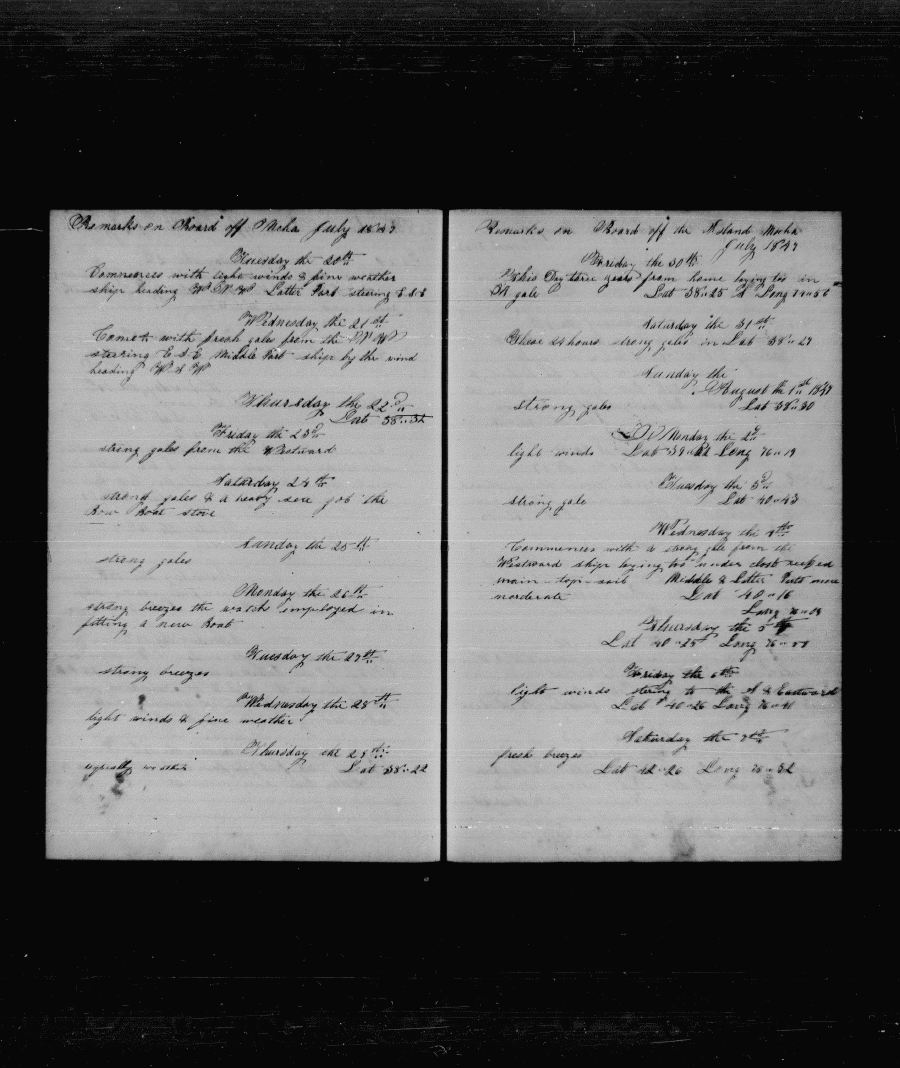 Remarks on Board off Mocha July 1847
Tuesday the 20th
Commences with light winds & fine weather
ship heading W N W Latter Part stearing E S E
Wednesday the 21st
Comet with fresh gales from the N W
stearing E S E Middle Part ship by the wind
heading W S W
Thursday the 22d
Lat 38"32
Friday the 23d
strong gales from the Westward
Saturday 24th
strong gales & a heavy sea the
Bow Boat stove
Sunday the 25th
strong gales
Monday the 26th
strong breezes the watch imployed in
fitting a new Boat
Tuesday the 27th
strong breezes
Wednesday the 28th
light winds & fine weather
Thursday the 29th
weather Lat 38"22
Remarks on Board off the Island Mocha
July 1847
Friday the 30th
This Day three years from home laying too in
A gale Lat 38"25 S Long 74"56
Saturday the 31st
These 24 hours strong gales in Lat 38"27
Sunday the
August the 1st 1847
strong gales Lat 38"30
Monday the 2d
light winds Lat 39" Long 76"19
Tuesday the 3d
strong gale Lat 40"43
Wednesday the 4th
Commences with a strong gale from the
Westward ship laying too under close reefed
main-top-sail Middle & Latter Parts more
morderate Lat 40"16
Long 76"09
Thursday the 5th
Lat 40"25 Long 76"
Friday the 6th
light winds stering to the S & Eastward
Lat 40"26 Long 76"41
Saturday the 7th
fresh breezes
Lat 42"26 Long 75"32